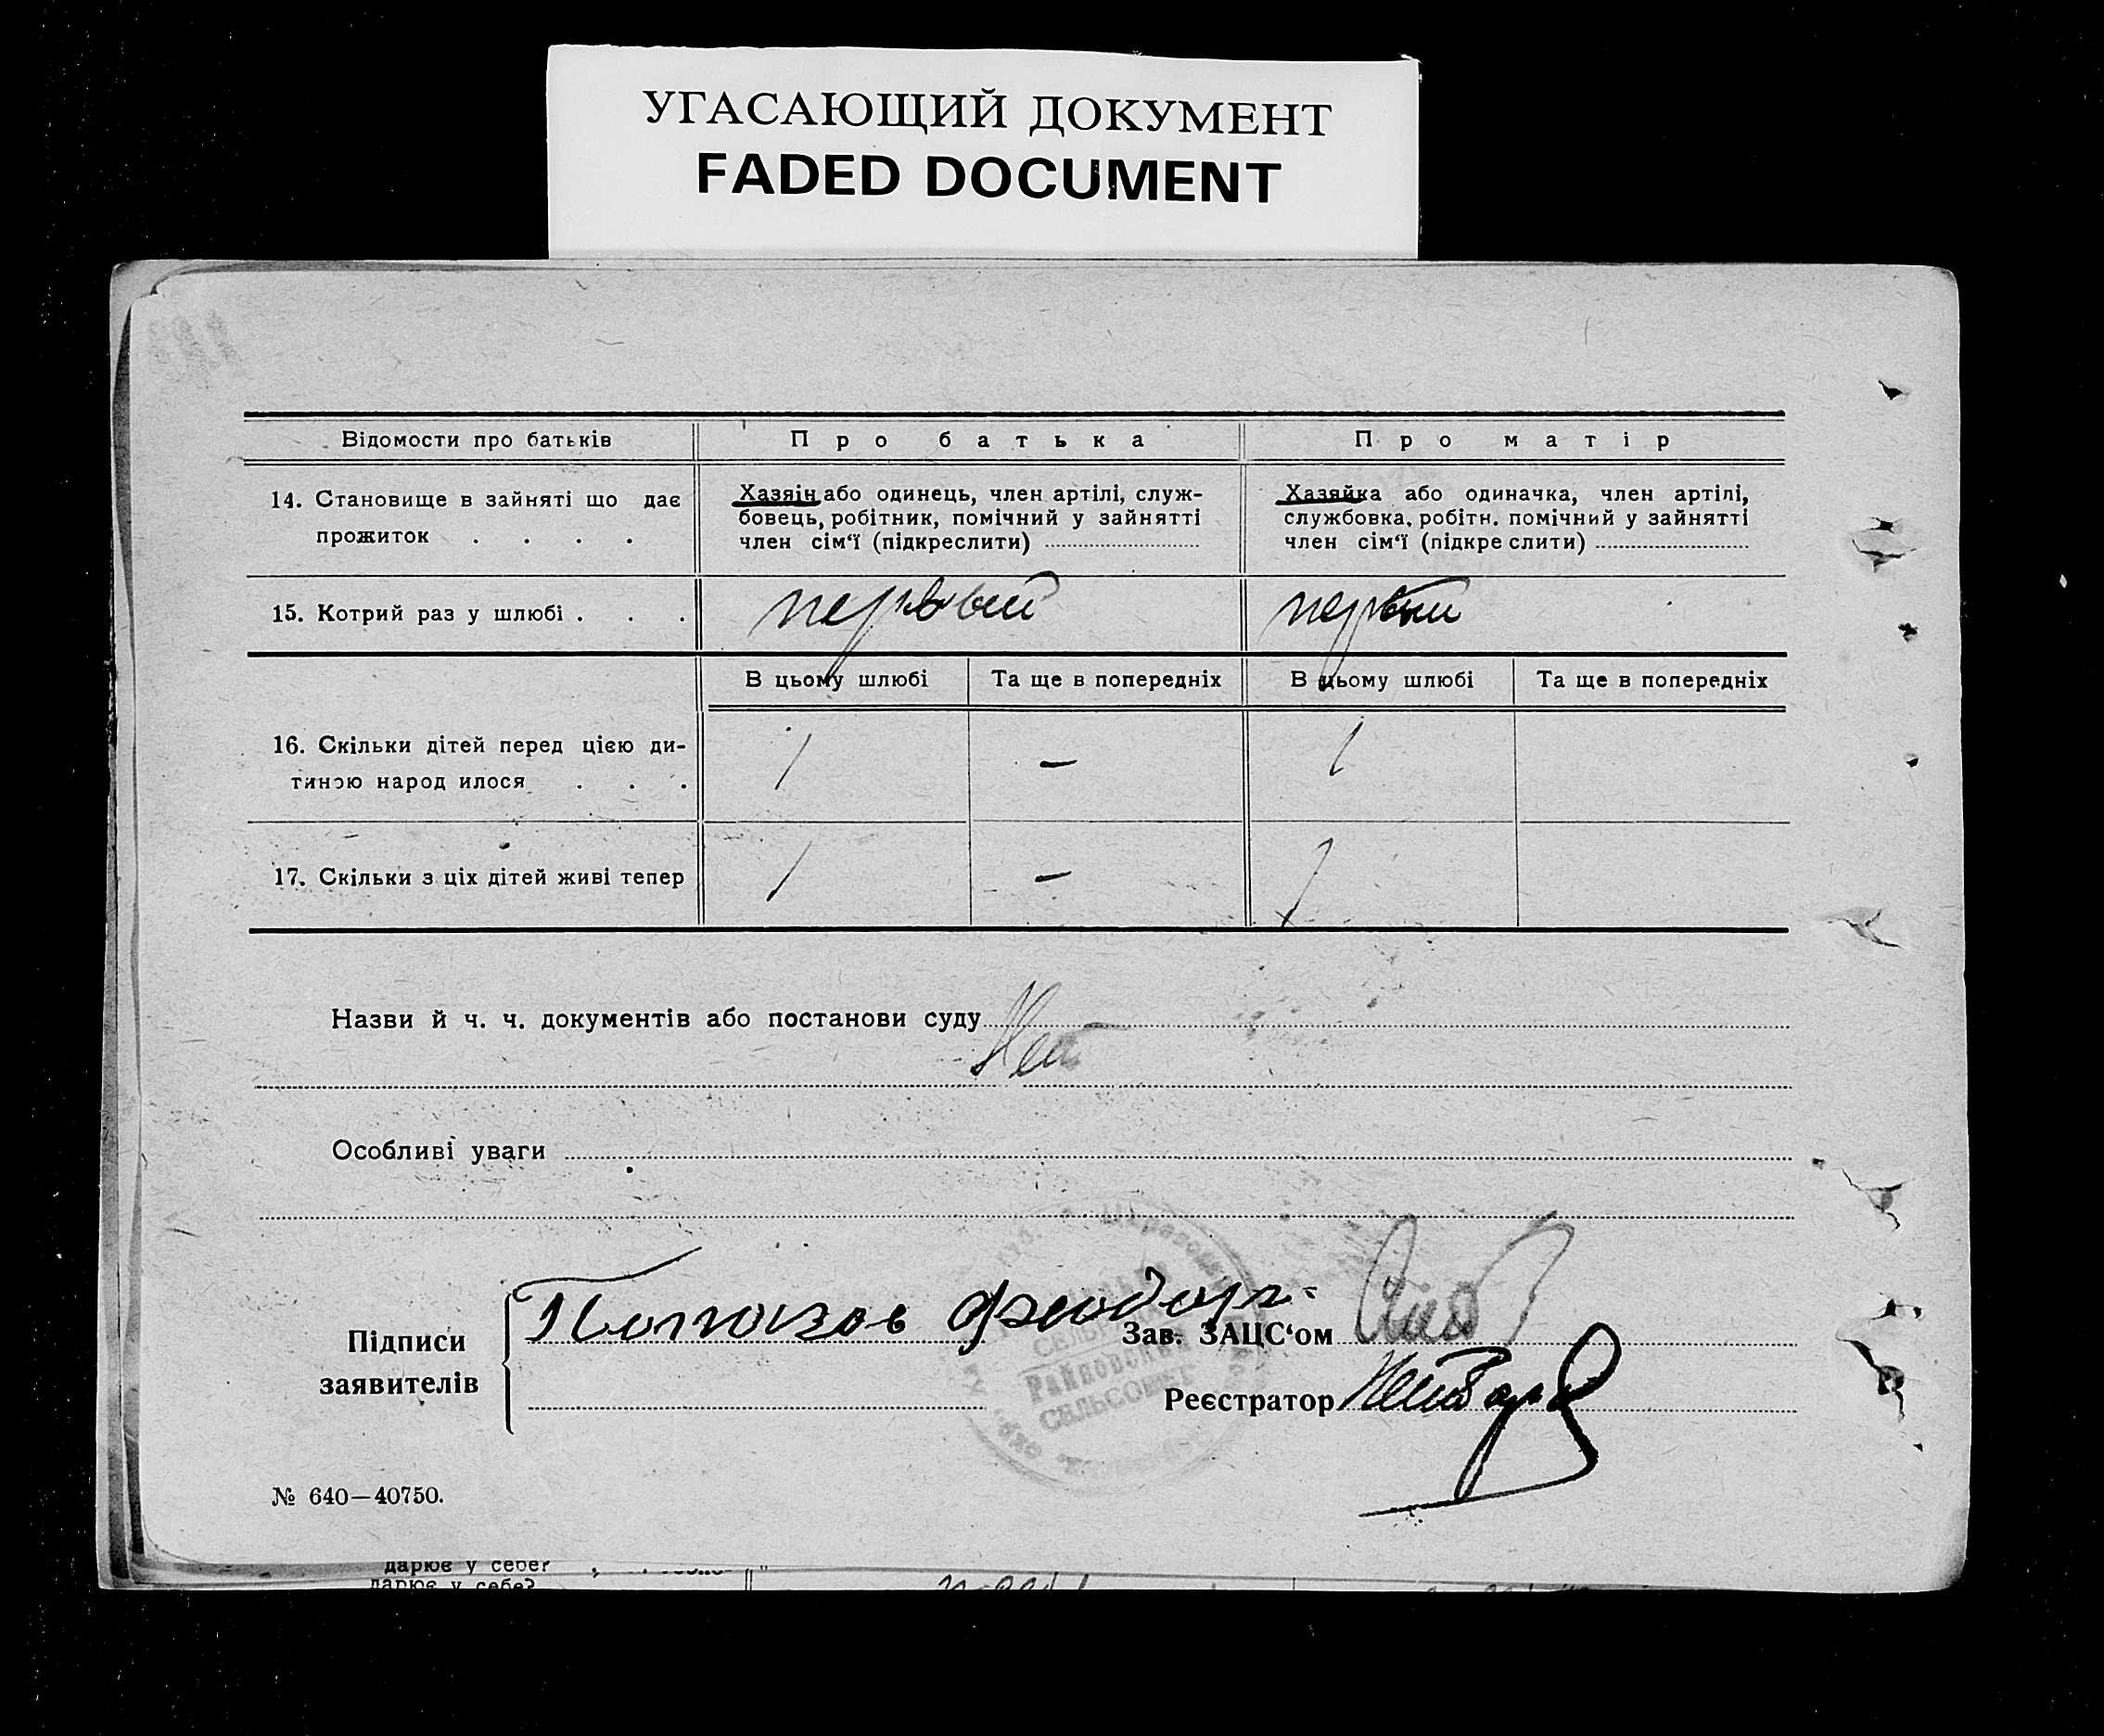 УГАСАЮЩИЙ ДОКУМЕНТ
FADED DOCUMENT
Відомости про батьків
Про батька
Про матір
14. Становище в зайняті що дає
прожиток . . . .
Хазяін або одинець, член артілі, служ-
бовець, робітник, помічний у зайнятті
член сім‘ї (підкреслити)
Хазяйка або одиначка, член артілі,
службовка, робітн. помічний у зайнятті
член сім‘ї (підкреслити)
15. Котрий раз у шлюбі . . .
первый
первый
В цьому шлюбі
Та ще в попередніх
В цьому шлюбі
Та ще в попередніх
16. Скільки дітей перед цією ди-
тиною народилося . . .
1
—
1
17. Скільки з ціх дітей живі тепер
1
—
1
Назви й ч. ч. документів або постанови суду
Нет
Особливі уваги
Підписи
заявителів
Феодор
Зав. ЗАЦС‘ом
Реєстратор
РАЙКОВСКИЙ
СЕЛЬСОВЕТ
№ 640—40750.
дарює у себе?
дарює у себе?